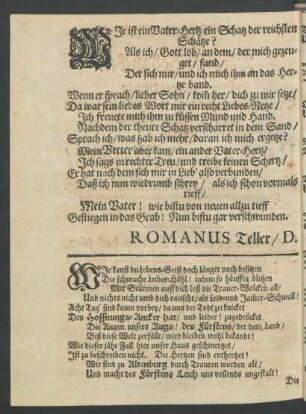 WJe ist ein Vater-Hertz ein Schatz der reichsten
Schätze?
Als ich/ Gott lob/ an dem/ der mich gezeu-
get/ fand/
Der sich mir/ und ich mich ihm an das Her-
tze band.
Wenn er sprach/ lieber Sohn/ kom her/ dich zu mir setze/
Da war sein liebes Wort mir ein recht Liebes-Netze/
Ich freuete mich ihm zu küssen Mund und Hand.
Nachdem der theure Schatz verscharret in dem Sand/
Sprach ich/ was hab ich mehr/ daran ich mich ergetze?
Mein Vetter aber kam/ ein ander Vater-Hertz/
Ich sags in rechter Treu/ und treibe keinen Schertz/
Er hat nach dem sich mir in Lieb' also verbunden/
Daß ich nun wiedrumb schrey/ als ich schon vormals
rieff/
Mein Vater! wie bistu von neuen allzu tieff
Gestiegen in das Grab! Nun bistu gar verschwunden.
ROMANUS Teller/ D.
WIe kanst du Lebens-Geist doch länger noch besitzen
Die schwache Leibes-Höhl! indem so häuffig blitzen
Mit Stürmen auff dich loß die Trauer-Wolcken all/
Und nichts nicht umb dich rauscht/ als Leid- und Jammer-Schwall!
Acht Tag' sind kaum vorbey/ da uns der Tod zerknicket
Den Hoffnungs-Ancker hat/ und leider! zugedrücket
Die Augen unsers Augs/ des Fürstens/ der dem Land/
Biß diese Welt zerfällt/ wird bleiben wohl bekandt!
Wie dieser jähe Fall hier unser Haus geschmertzet/
Ist zu beschreiben nicht. Die Hertzen sind entherzet!
Wir sind zu Altenburg durch Trauren worden alt/
Und macht des Fürstens Leich uns vollends ungestalt!
Die